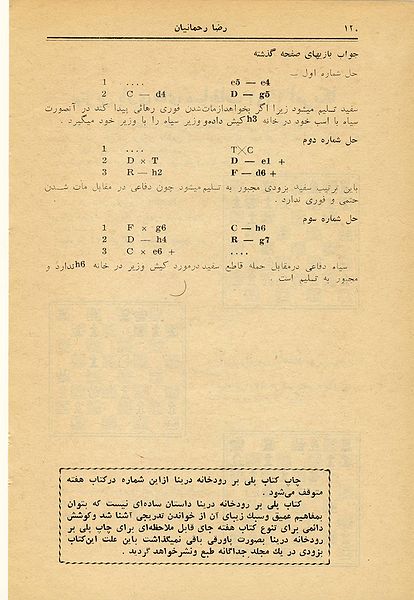 ۱۲۰ رضا رحمانیان
جواب بازیهای صفحه گذشته
حل شماره اول —
1 .... e5 — e4
2 C — d4 D — g5
سفید تسلیم میشود زیرا اگر بخواهدازمات‌شدن فوری رهائی پیدا کند در آنصورت
سیاه با اسب خود در خانه h3 کیش داده و وزیر سیاه را با وزیر خود میگیرد .
حل شماره دوم
1 .... T×C
2 D × T D — e1 +
3 R — h2 F — d6 +
باین ترتیب سفید بزودی مجبور به تسلیم میشود چون دفاعی در مقابل مات شدن
حتمی و فوری ندارد .
حل شماره سوم
1 F × g6 C — h6
2 D — h4 R — g7
3 C × e6 + ....
سیاه دفاعی درمقابل حمله قاطع سفید درمورد کیش وزیر در خانه h6 ندارد و
مجبور به تسلیم است .
چاپ کتاب پلی بر رودخانه درینا ازاین شماره درکتاب هفته
متوقف می‌شود .
کتاب پلی بر رودخانه درینا داستان ساده‌ای نیست که بتوان
بمفاهیم عمیق وسبك زیبای آن از خواندن تدریجی آشنا شد وکوشش
دائمی برای تنوع کتاب هفته جای قابل ملاحظه‌ای برای چاپ پلی بر
رودخانه درینا بصورت پاورقی باقی نمیگذاشت باین علت این‌کتاب
بزودی در یك مجلد جداگانه طبع ونشرخواهد گردید .